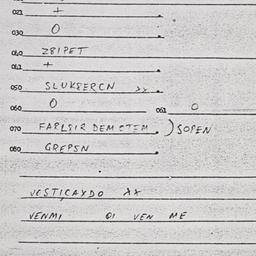 021 +
030 O
040 ZBIPET
041 +
050 SLUKSERCN xx
060 O 061 O
070 FARLSIR DEMCTEM ) SOPEN
080 GREPSN
VESTICAXDO xx
VENMI OI VEN ME